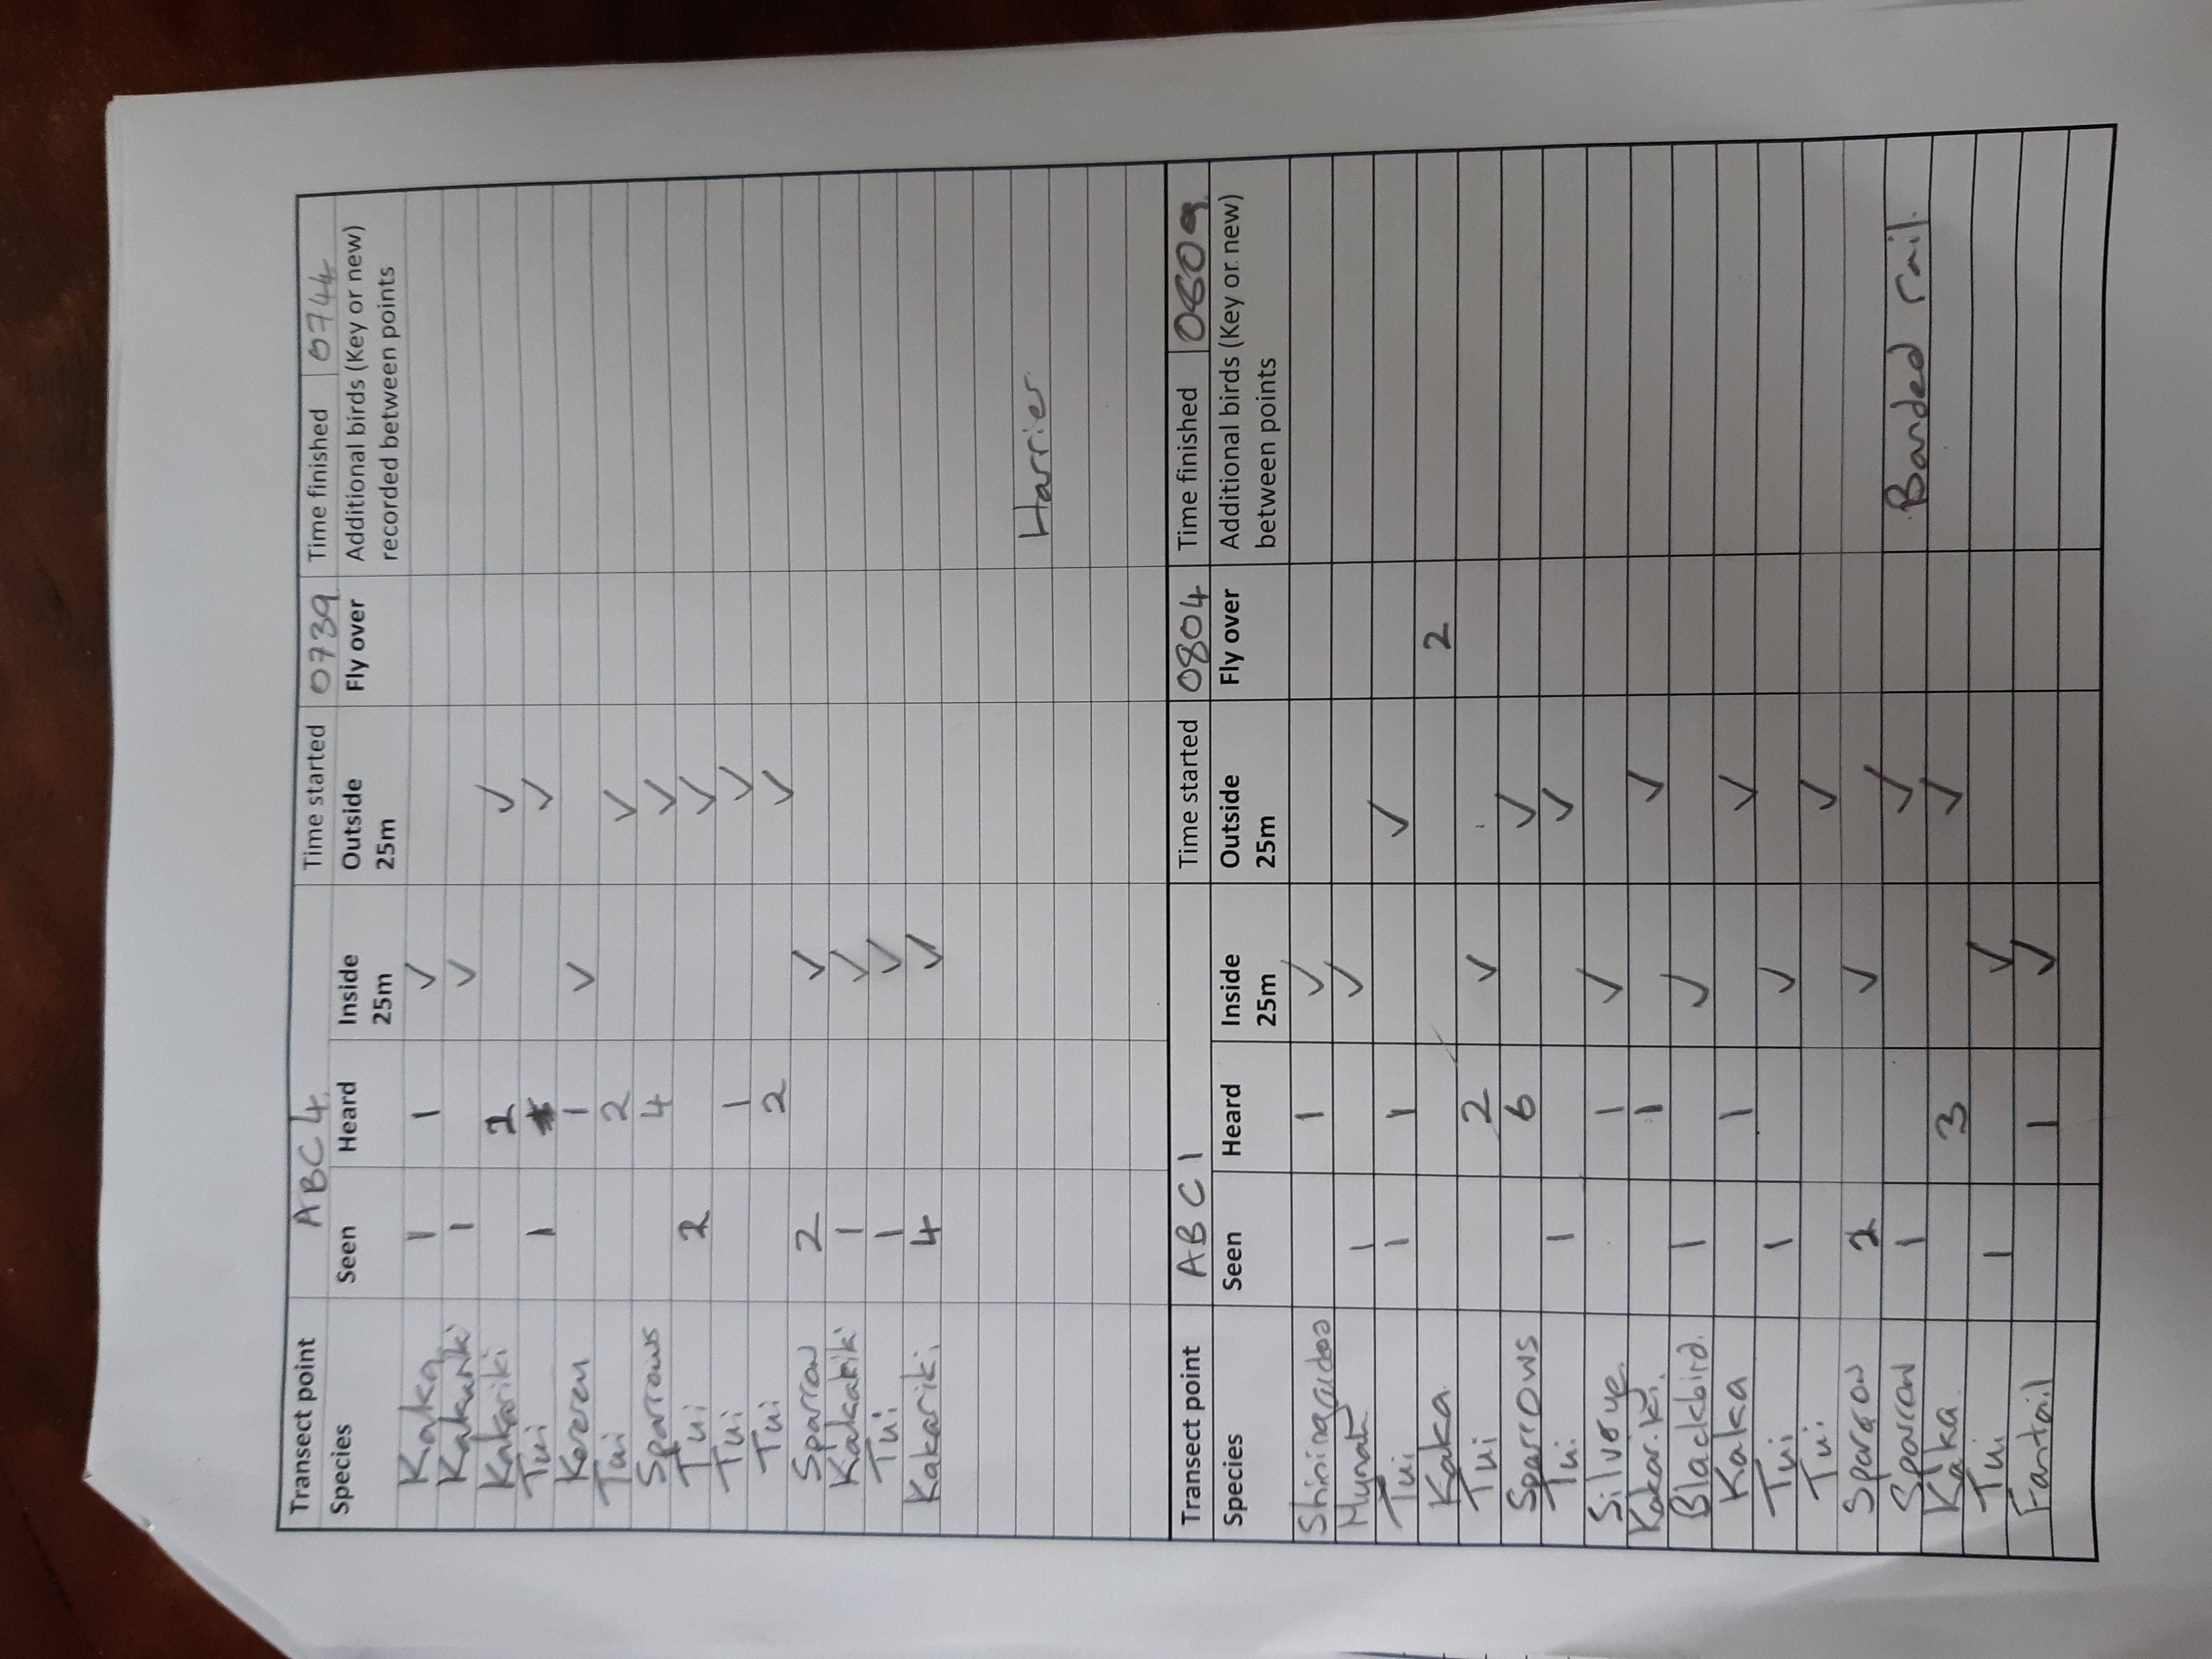 Transect point ABC4 Time started 0739 Time finished 0744
Species Seen Heard Inside 25m Outside 25m Fly over Additional birds (Key or new) recorded between points
Kaka 1 1 ✓
Kakariki 1 ✓
Kakariki 2 ✓
Tui 1 ✓
Kereru 1 ✓
Tui 2 ✓
Sparrows 4 ✓
Tui 2 ✓
Tui 1 ✓
Tui 2 ✓
Sparrow 2 ✓
Kakariki 1 ✓
Tui 1 ✓
Kakariki 4 ✓
Harrier
Transect point ABC1 Time started 0804 Time finished 0809
Species Seen Heard Inside 25m Outside 25m Fly over Additional birds (Key or new) between points
Shining 1 ✓
Mynah 1 ✓
Tui 1 1 ✓
Kaka 2
Tui 2 ✓
Sparrows 6 ✓
Tui 1 ✓
Silvereye 1 ✓
Kakariki 1 ✓
Blackbird. 1 ✓
Kaka 1 ✓
Tui 1 ✓
Tui ✓
Sparrow 2 ✓
Sparrow 1 ✓ Banded rail.
Kaka 3 ✓
Tui 1 ✓
Fantail 1 ✓